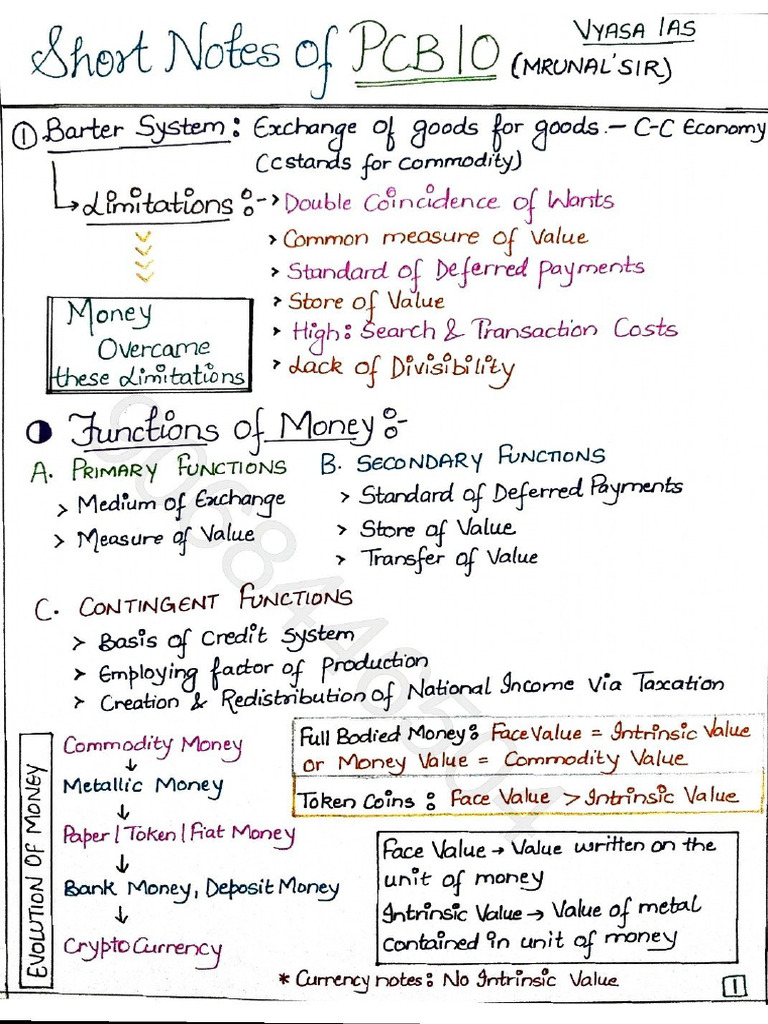 Short Notes of PCB10 (MRUNAL'SIR)
VYASA IAS
① Barter System: Exchange of goods for goods. – C-C Economy
(C stands for commodity)
Limitations :-
> Double Coincidence of Wants
> Common measure of Value
> Standard of Deferred Payments
> Store of Value
> High: Search & Transaction Costs
> Lack of Divisibility
Money
Overcame
these Limitations
Functions of Money :-
A. PRIMARY FUNCTIONS
> Medium of Exchange
> Measure of Value
B. SECONDARY FUNCTIONS
> Standard of Deferred Payments
> Store of Value
> Transfer of Value
C. CONTINGENT FUNCTIONS
> Basis of Credit System
> Employing factor of Production
> Creation & Redistribution of National Income Via Taxation
EVOLUTION OF MONEY
Commodity Money
↓
Metallic Money
↓
Paper / Token / Fiat Money
↓
Bank Money, Deposit Money
↓
CryptoCurrency
Full Bodied Money: Face Value = Intrinsic Value
or Money Value = Commodity Value
Token Coins : Face Value > Intrinsic Value
Face Value → Value written on the
unit of money
Intrinsic Value → Value of metal
contained in unit of money
* Currency notes: No Intrinsic Value
1